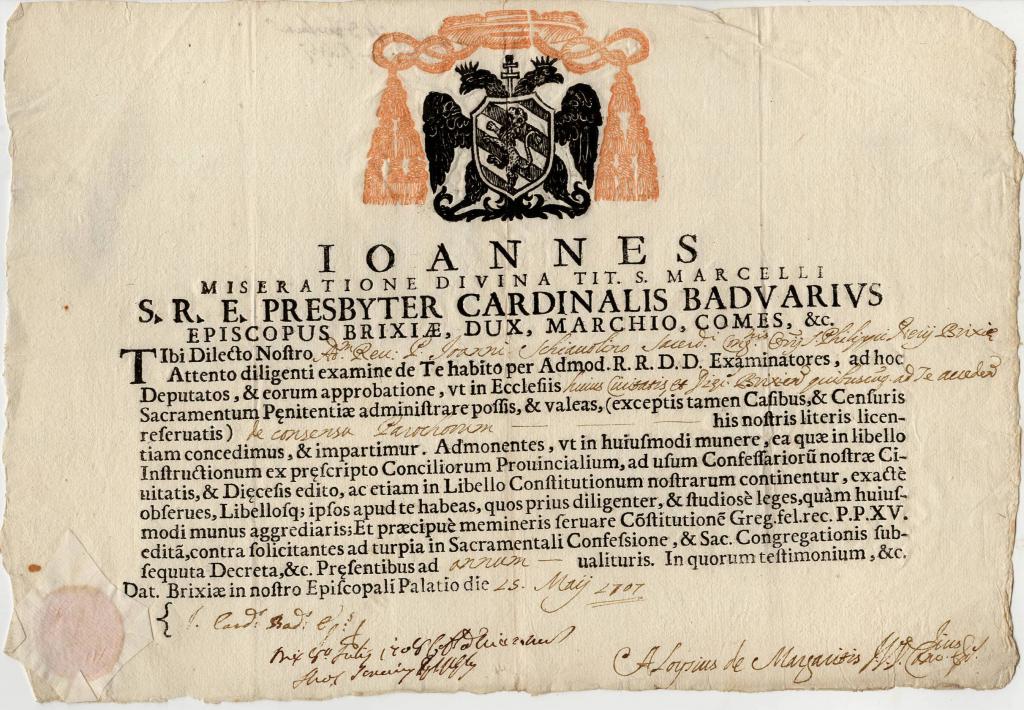 IOANNES
MISERATIONE DIVINA TIT. S. MARCELLI
S. R. E. PRESBYTER CARDINALIS BADVARIVS
EPISCOPUS BRIXIÆ, DUX, MARCHIO, COMES, &c.
TIbi Dilecto Nostro Adm. Reu: P. Ioanni Schiauolino Sacerdi Philippi Nerij Brixiæ
Attento diligenti examine de Te habito per Admod. R. R. D. D. Examinatores, ad hoc
Deputatos, & eorum approbatione, vt in Ecclesiis huius Ciuitatis et quibuscuq ad Te
Sacramentum Pęnitentiæ administrare possis, & valeas, (exceptis tamen Casibus, & Censuris
reseruatis) de consensu Parochorum his nostris literis licen-
tiam concedimus, & impartimur. Admonentes, vt in huiusmodi munere, ea quæ in libello
Instructionum ex pręscripto Conciliorum Prouincialium, ad usum Confessariorū nostræ Ci-
uitatis, & Dięcesis edito, ac etiam in Libello Constitutionum nostrarum continentur, exactè
obserues, Libellosq; ipsos apud te habeas, quos prius diligenter, & studiosè leges, quàm huius-
modi munus aggrediaris; Et præcipuè memineris seruare Cōstitutionē Greg. fel. rec. P. P. XV.
editã, contra solicitantes ad turpia in Sacramentali Confessione, & Sac. Congregationis sub-
sequuta Decreta, &c. Pręsentibus ad annum ualituris. In quorum testimonium, &c.
Dat. Brixiæ in nostro Episcopali Palatio die 25. Maij 1707
Card. Bad.
Aloysius de Margaritis